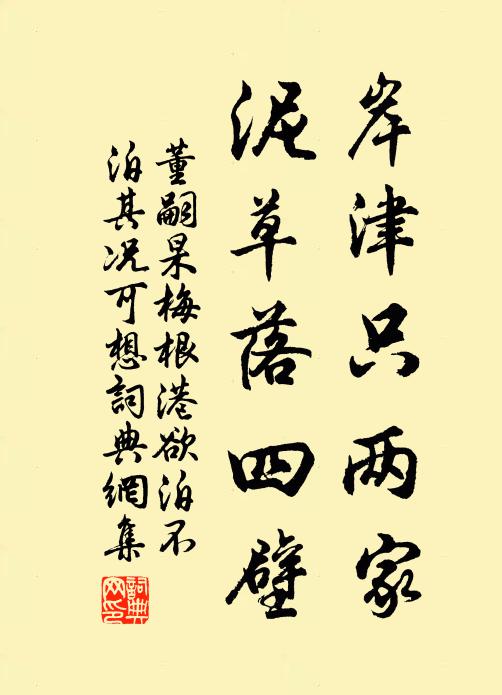 岸津只两家
泥草落四壁
董嗣杲梅根港欲泊不
泊其况可想詞典網集
詞典